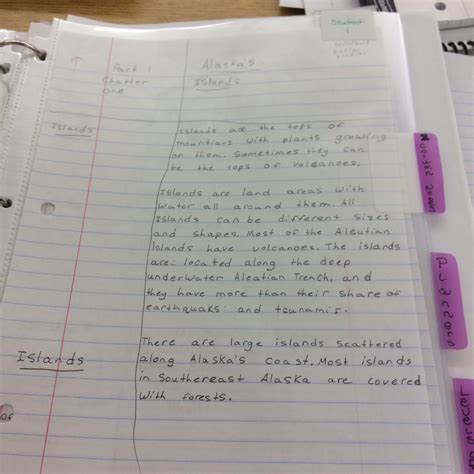 Student
1
Part 1
Chapter
one
Alaska's
Islands
Islands
Islands are the tops of
mountians with plants growing
on them. Sometimes they can
be the tops of volcanoes.
Islands are land areas with
water all around them. All
Islands can be different sizes
and shapes. Most of the Aleutian
Islands have volcanoes. The islands
are located along the deep
underwater Aleatian Trench, and
they have more than their share of
earthquaks and tsunami's.
Islands
There are large islands scattered
along Alaska's coast. Most islands
in Southereast Alaska are covered
with forests.